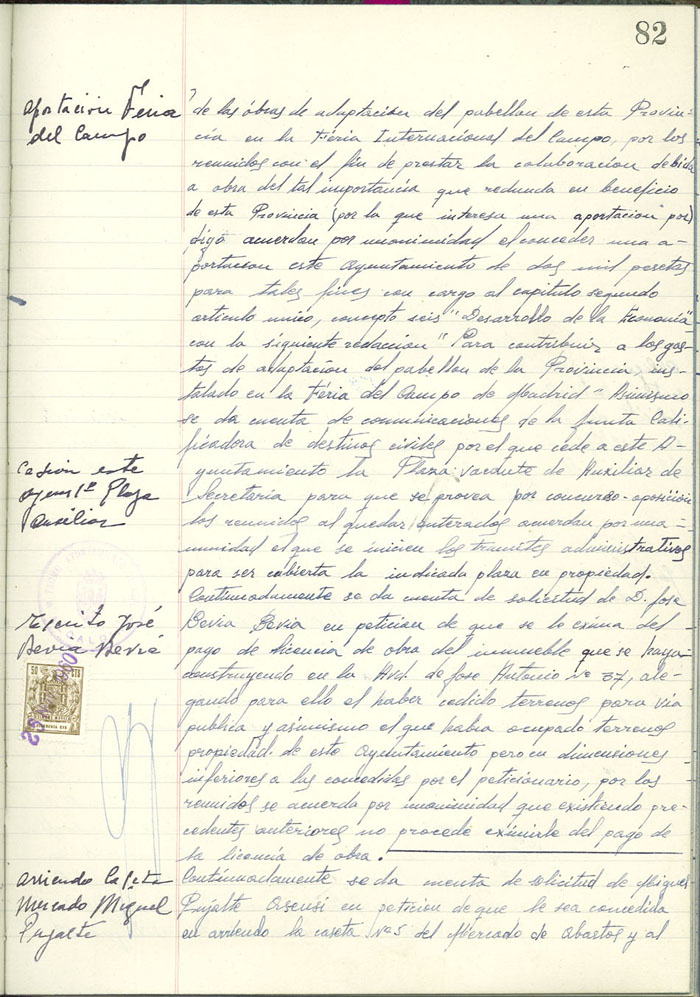 82
aportacion Féria
del Campo
de las óbras de adaptación del pabellon de esta Provin-
cia en la Féria Internacional del Campo, por los
reunidos con el fin de prestar la colaboracion debida
a obra del tal importáncia que redunda en beneficio
de esta Provincia (por la que interesa una aportacion por)
digo acuerdan por unonimidad el conceder una a-
portacion este Ayuntamiento de dos mil pesetas
para tales fines con cargo al capitulo segundo
articulo unico, concepto seis "Desarrollo de la Economia"
con la siguiente redacion "Para contribuir a los gas-
tos de adaptacion del pabellon de la Provincia ins-
talado en la Féria del Campo de Madrid" Asimismo
se da cuenta de comunicaciones de la Junta Cali-
ficadora de destinos civiles por el que cede a este A-
yuntamiento la Plaza vacante de Auxiliar de
Secretaria para que se provea por concurso-oposición
los reunidos al quedar enterados acuerdan por una-
nimidad el que se inicien los tramites administrativos
para ser cubierta la indicada plaza en propiedad.
Cesión este
Plaza
Auxiliar
Continuadamente se da cuenta de solicitud de D. Jose
Bevia Bevia en peticion de que se le exima del
pago de licencia de obra del inmueble que se haya
construyendo en la Avd. de Jose Antonio nº 37, ale-
gando para ello el haber cedido terrenos para via
publica y asimismo el que habia ocupado terrenos
propiedad de este Ayuntamiento pero en dimensiones
inferiores a las concedidas por el peticionario, por los
reunidos se acuerda por unonimidad que existiendo pre-
cedentes anteriores no procede eximirle del pago de
la licencia de obra.
Escrito José
Bevia Bevia
50 CTS
Arriendo Caseta
Mercado Miguel
Pujalte
Continuadamente se da cuenta de solicitud de Miguel
Pujalte Asensi en peticion de que le sea concedida
en arriendo la caseta nº 5 del Mercado de Abastos y al